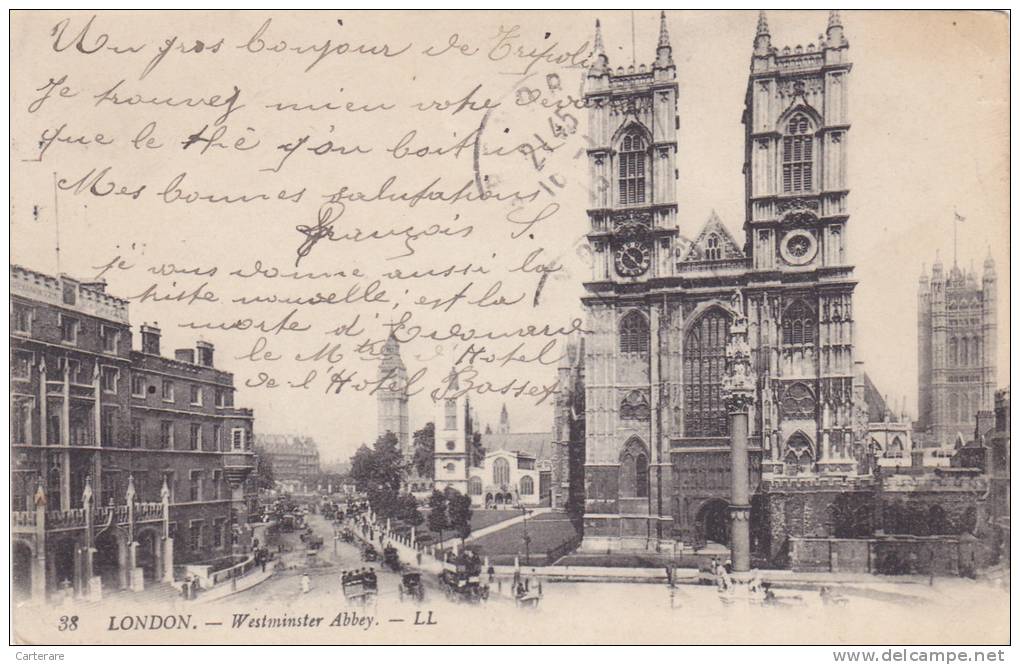 Un gros bonjour de Tripoli
Je trouve mieu votre
que le thé qu'on boit ici
Mes bonnes salutations
François S.
je vous donne aussi la
triste nouvelle, est la
morte d'Edouard
le Mtre d'Hotel
de l'Hotel
38 LONDON. — Westminster Abbey. — LL
Carterare
http://www.delcampe.net